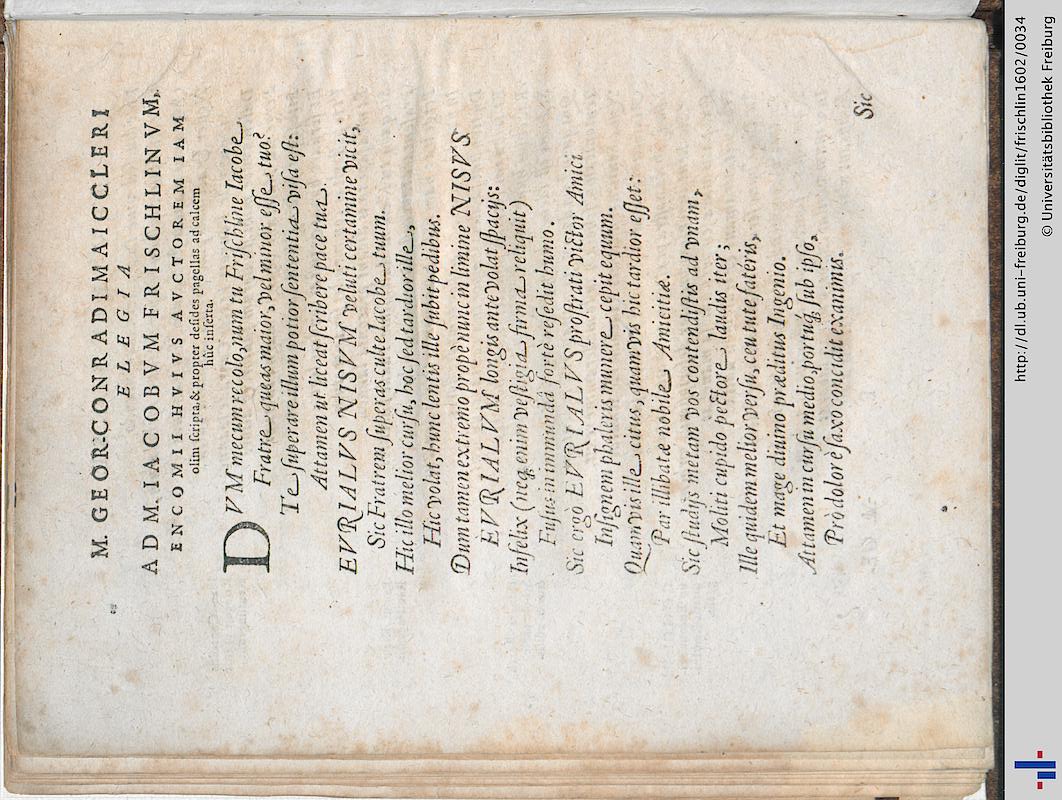 M. GEOR-CONRADI MAICCLERI
ELEGIA
AD M. IACOBVM FRISCHLINVM,
ENCOMII HVIVS AVCTOREM IAM
olim scripta, & propter desides pagellas ad calcem
hûc inserta.
DVM mecum recolo, num tu Frischline Iacobe
Fratre queas maior, vel minor esse tuo?
Te superare illum potior sententia visa est:
Attamen ut liceat scribere pace tua.
EVRIALVS NISVM veluti certamine vicit,
Sic Fratrem superas culte Iacobe tuum.
Hic illo melior cursu, hoc sed tardior ille,
Hic volat, hunc lentis ille subit pedibus.
Dum tamen extremo propè nunc in limine NISVS
EVRIALVM longis antevolat spacijs:
Infelix (neq; enim vestigia firma reliquit)
Fusus in immundâ forte resedit humo.
Sic ergò EVRIALVS prostrati victor Amici
Insignem phaleris munere cepit equum.
Quamvis ille citus, quamvis hic tardior esset:
Par illibatæ nobile Amicitiæ.
Sic studijs metam vos contendistis ad vnam,
Moliti cupido pectore laudis iter;
Ille quidem melior versu, ceu tute fateris,
Et mage diuino præditus Ingenio.
Attamen in cursu medio, portuq; sub ipso,
Prô dolor è saxo concidit exanimis.
Sic
http://dl.ub.uni-freiburg.de/diglit/frischlin1602/0034
© Universitätsbibliothek Freiburg